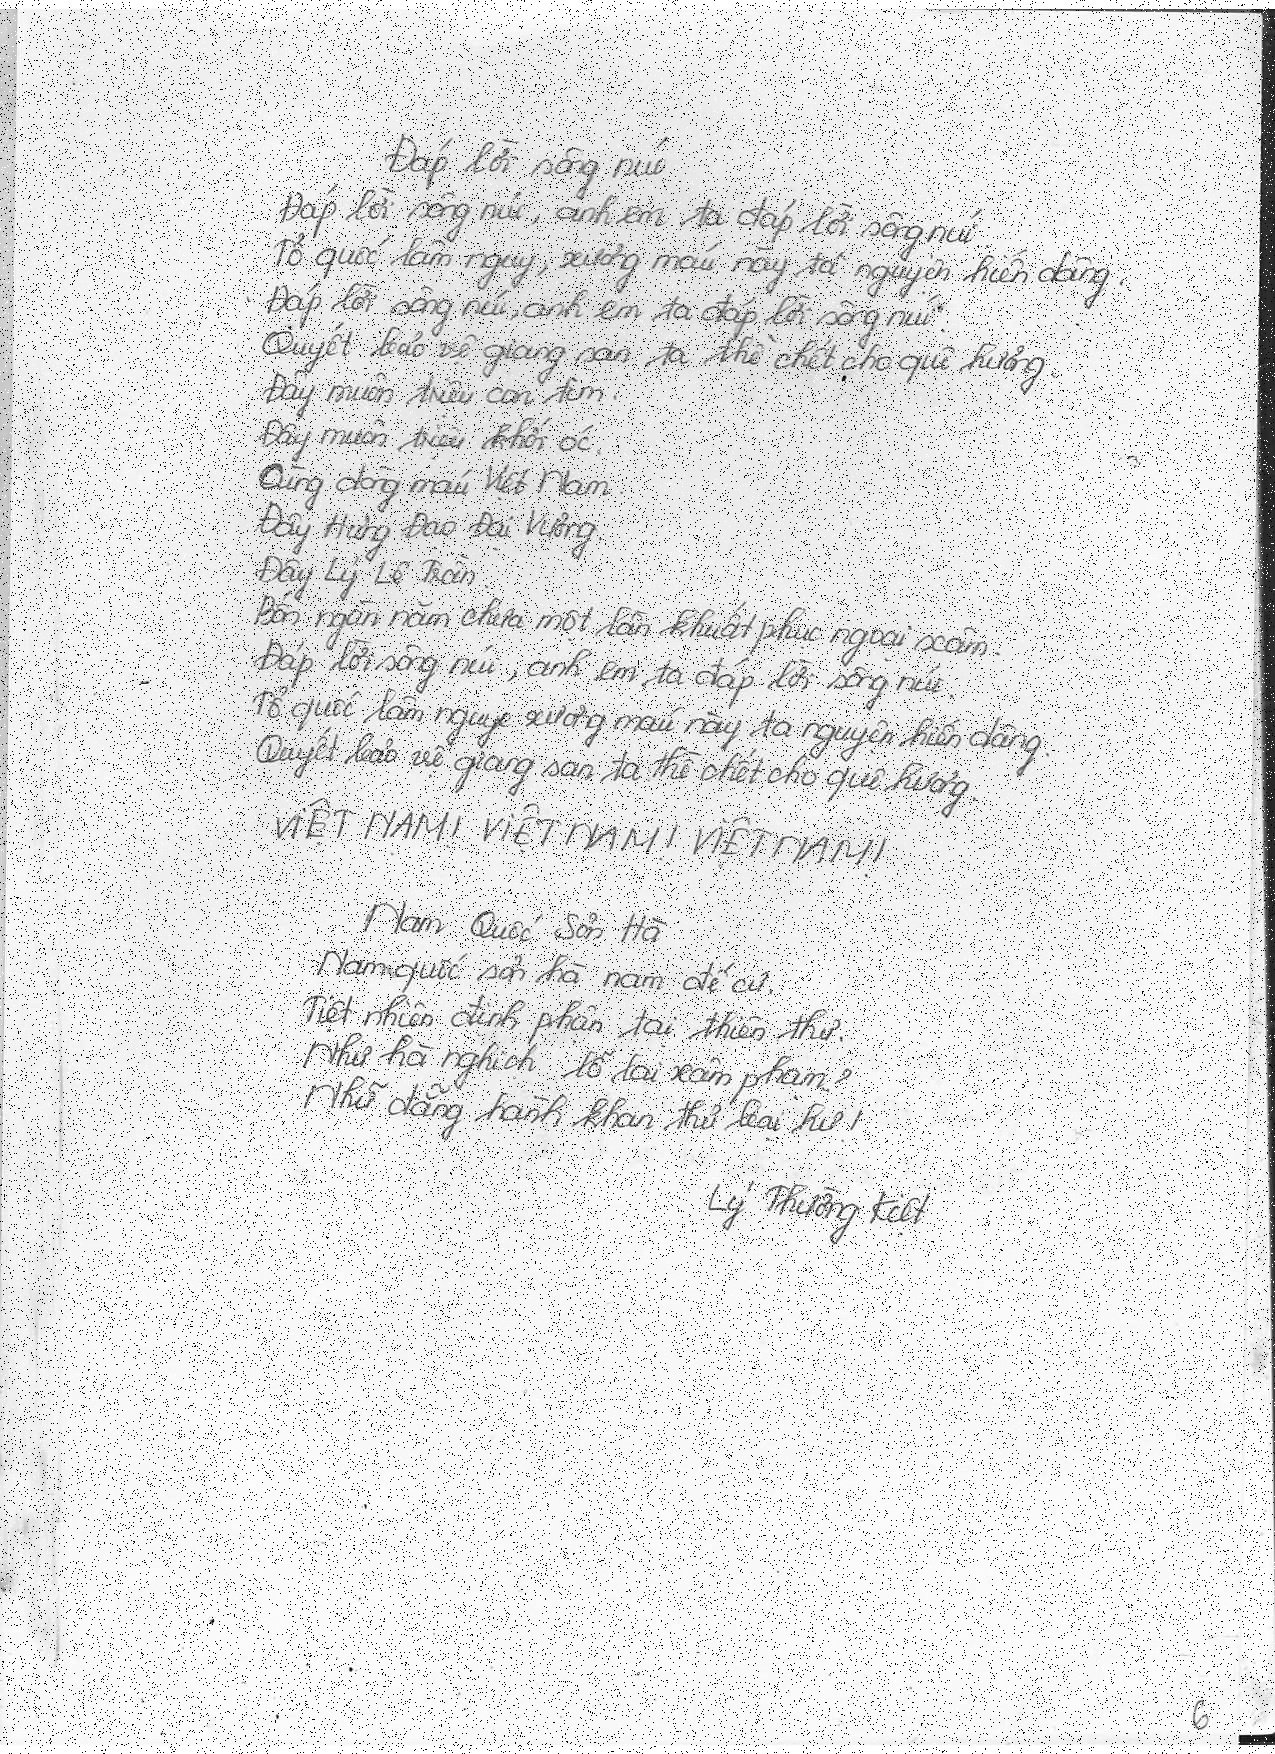 Đáp lời sông núi
Đáp lời sông núi, anh em ta đáp lời sông núi
Tổ quốc lâm nguy, xương máu này ta nguyện hiến dâng.
Đáp lời sông núi, anh em ta đáp lời sông núi.
Quyết bảo vệ giang san ta thề chết cho quê hương.
Đây muôn triệu con tim.
Đây muôn triệu khối óc.
Cùng dòng máu Việt Nam.
Đây Hưng Đạo Đại Vương.
Đây Lý Lê Trần.
Bốn ngàn năm chưa một lần khuất phục ngoại xâm.
Đáp lời sông núi, anh em ta đáp lời sông núi.
Tổ quốc lâm nguy xương máu này ta nguyện hiến dâng.
Quyết bảo vệ giang san ta thề chết cho quê hương.
VIỆT NAM! VIỆT NAM! VIỆT NAM!
Nam Quốc Sơn Hà
Nam quốc sơn hà nam đế cư.
Tiệt nhiên định phận tại thiên thư.
Như hà nghịch lỗ lai xâm phạm?
Nhữ đẳng hành khan thủ bại hư!
Lý Thường Kiệt
6